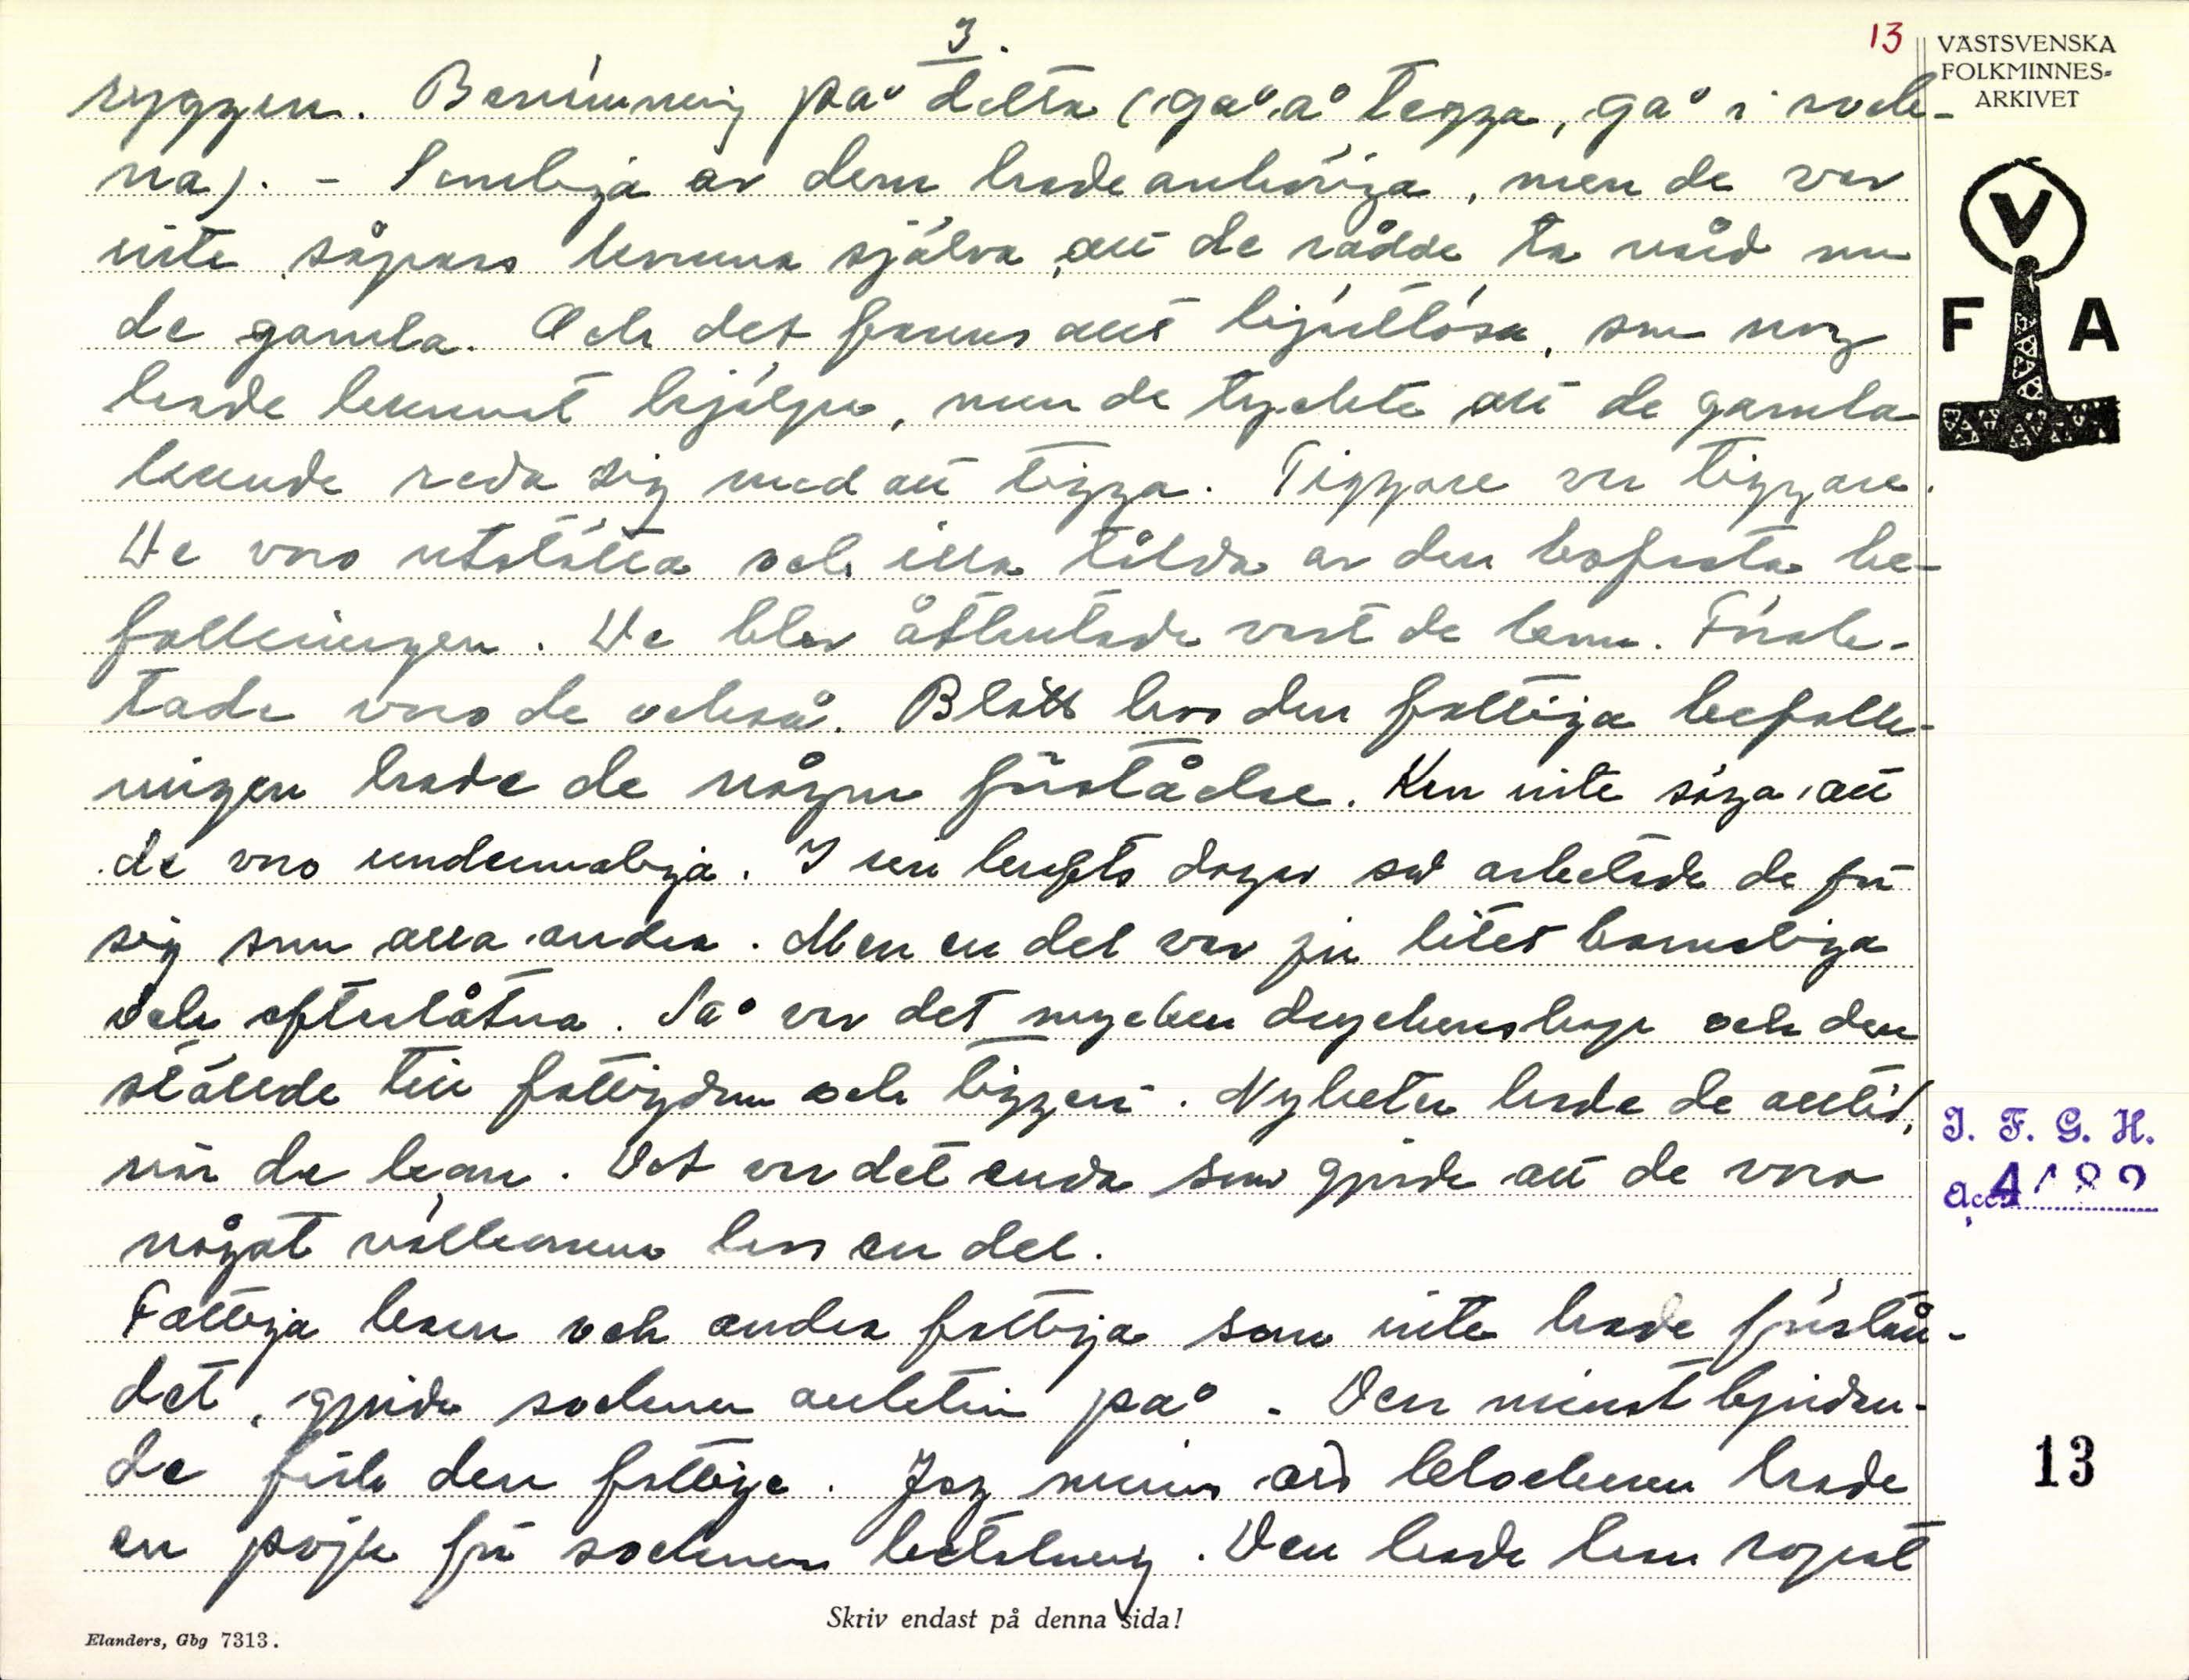 3.
13
VÄSTSVENSKA
FOLKMINNES-
ARKIVET
ryggen. Benämning på detta (gå å tegga, gå i sock-
na). - Somliga av dem hade anhöriga, men de var
inte såpass komna själva att de rådde ta vård om
de gamla. Och det fanns allt hjärtlösa, som nog
hade kunnat hjälpa, men de tyckte att de gamla
kunde reda sig med att tigga. Tiggare var tiggare.
De voro utstötta och illa tålda av den bofasta be-
folkningen. De blev åthutade vart de kom. Förak-
tade voro de också. Blott hos den fattiga befolk-
ningen hade de någon förståelse. Kan inte säga att
de voro undermåliga. I sin krafts dagar så arbetade de för
sig som alla andra. Men en del var ju litet barnsliga
och efterlåtna. Så var det mycken dryckenskap och den
ställde till fattigdom och tiggeri. Nyheter hade de alltid,
när de kom. Det var det enda som gjorde att de voro
något välkomna hos en del.
Fattiga barn och andra fattiga som inte hade förstån-
det, gjorde socknen auktion på. Den minst bjudan-
de fick den fattige. Jag minns att klockaren hade
en pojke för socknens betalning. Den hade han
Skriv endast på denna sida!
Elanders, Gbg 7313.
V
F A
I. F. G. H.
Acc. 4182
13